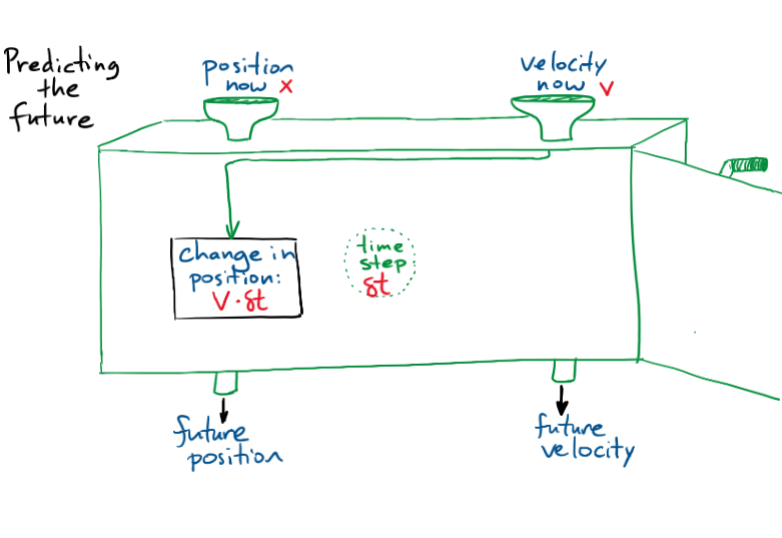 Predicting
the
future
position
now x
velocity
now v
change in
position:
v·δt
time
step
δt
future
position
future
velocity